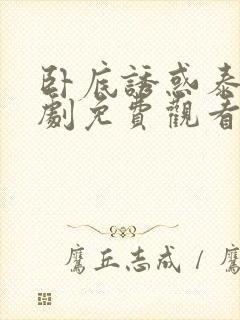 卧底誘惑泰
劇免費觀看
鷹丘志成 / 鷹